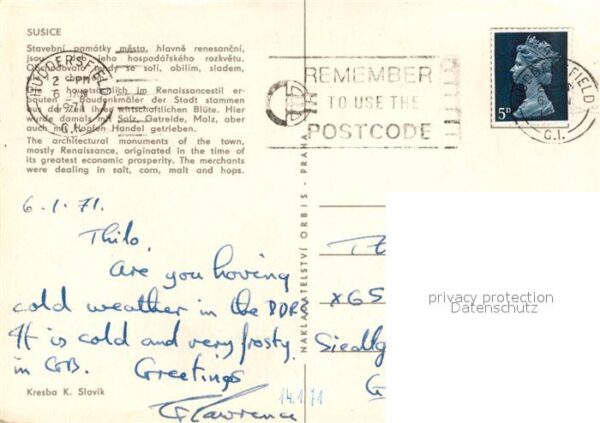 SUŠICE
Stavební památky města, hlavně renesanční,
jsou jeho hospodářského rozkvětu.
Obchodovalo se solí, obilím, sladem,
chmelem
hauptsächlich im Renaissancestil er-
bauten Baudenkmäler der Stadt stammen
aus der Zeit ihrer wirtschaftlichen Blüte. Hier
wurde damals mit Salz, Getreide, Malz, aber
auch mit Hopfen Handel getrieben.
The architectural monuments of the town,
mostly Renaissance, originated in the time of
its greatest economic prosperity. The merchants
were dealing in salt, corn, malt and hops.
HUDDERSFIELD
2 PM
6 JAN
1971
G.I.
REMEMBER
TO USE THE
POSTCODE
5D
FIELD
G.I.
NAKLADATELSTVÍ ORBIS - PRAHA
6.1.71.
Thilo,
Are you having
cold weather in the DDR
It is cold and very frosty
in GB. Greetings
G Lawrence
14.1.71
Kresba K. Slavík
X65
G
privacy protection
Datenschutz